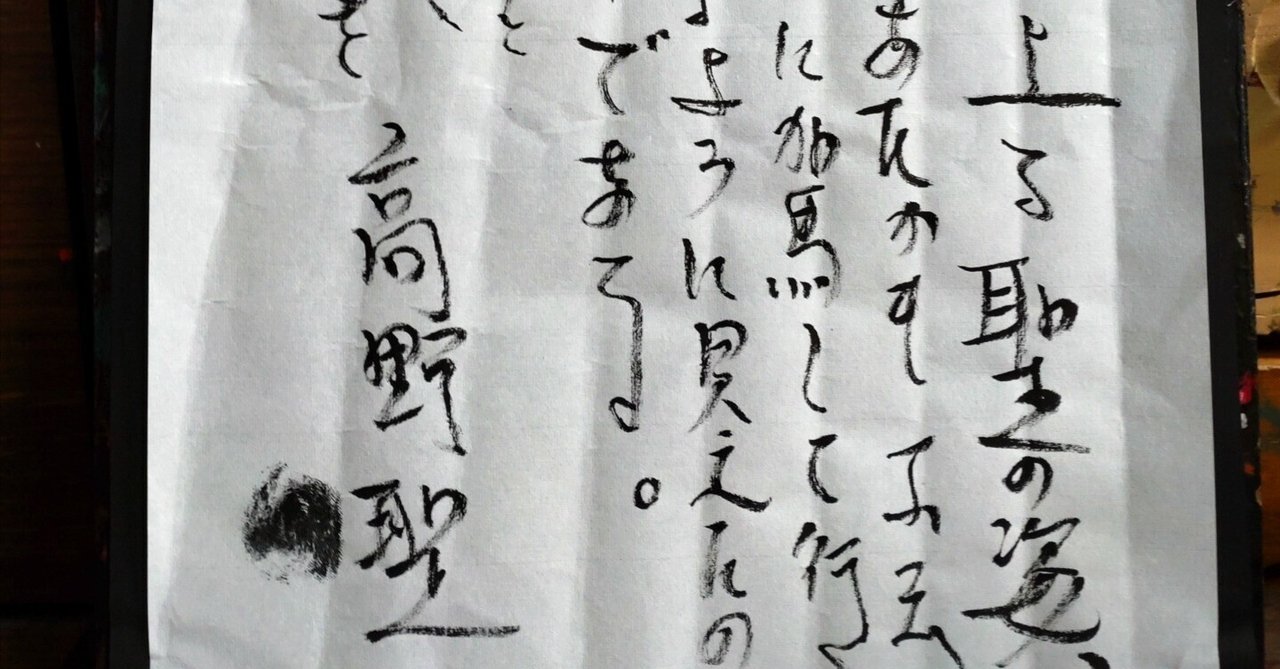 上る聖の姿、
あたかも雲
に駕して行
ように見えたの
である。
高野聖